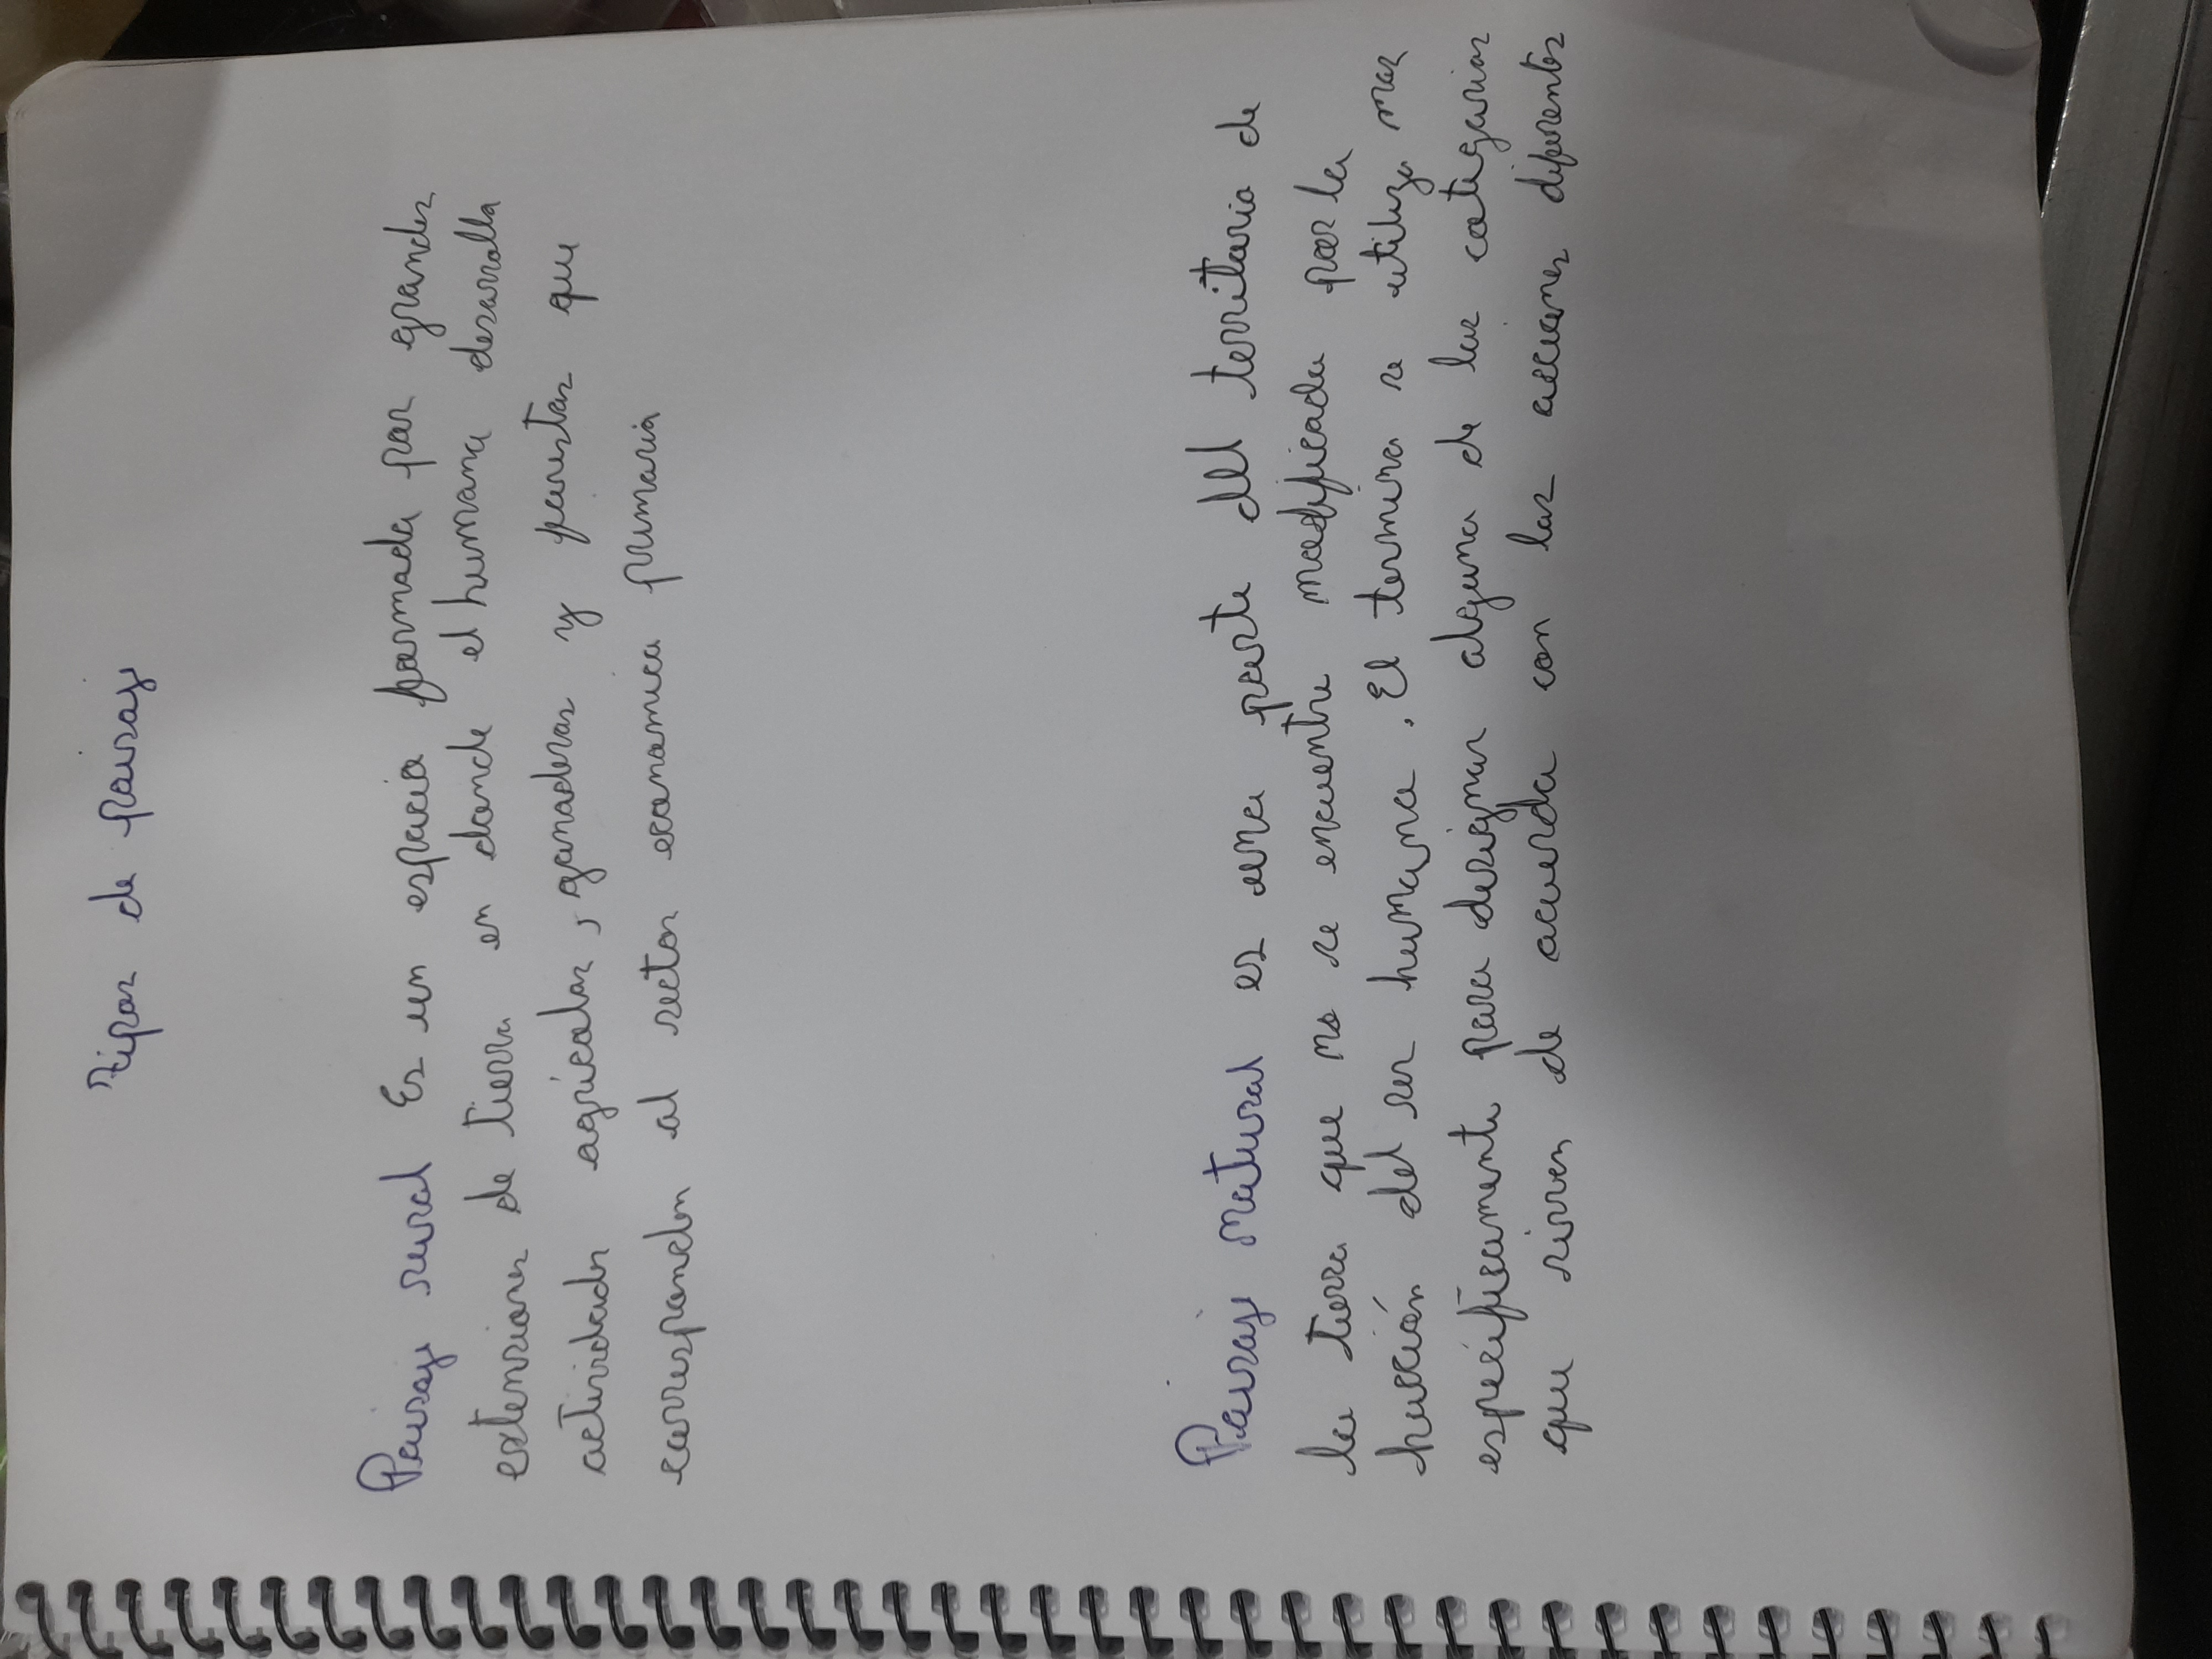 Tipos de paisaje
Paisaje rural Es un espacio formado por grandes
extensiones de tierra en donde el humano desarrolla
actividades agrícolas, ganaderas y forestas que
corresponden al sector economico primario
Paisaje natural es una parte del territorio de
la tierra que no se encuentre modificada por la
hución del ser humano. El termino se utiliza mas
especificamente para designar alguna de las categorias
que sirven de acuerdo con las acciones diferentes